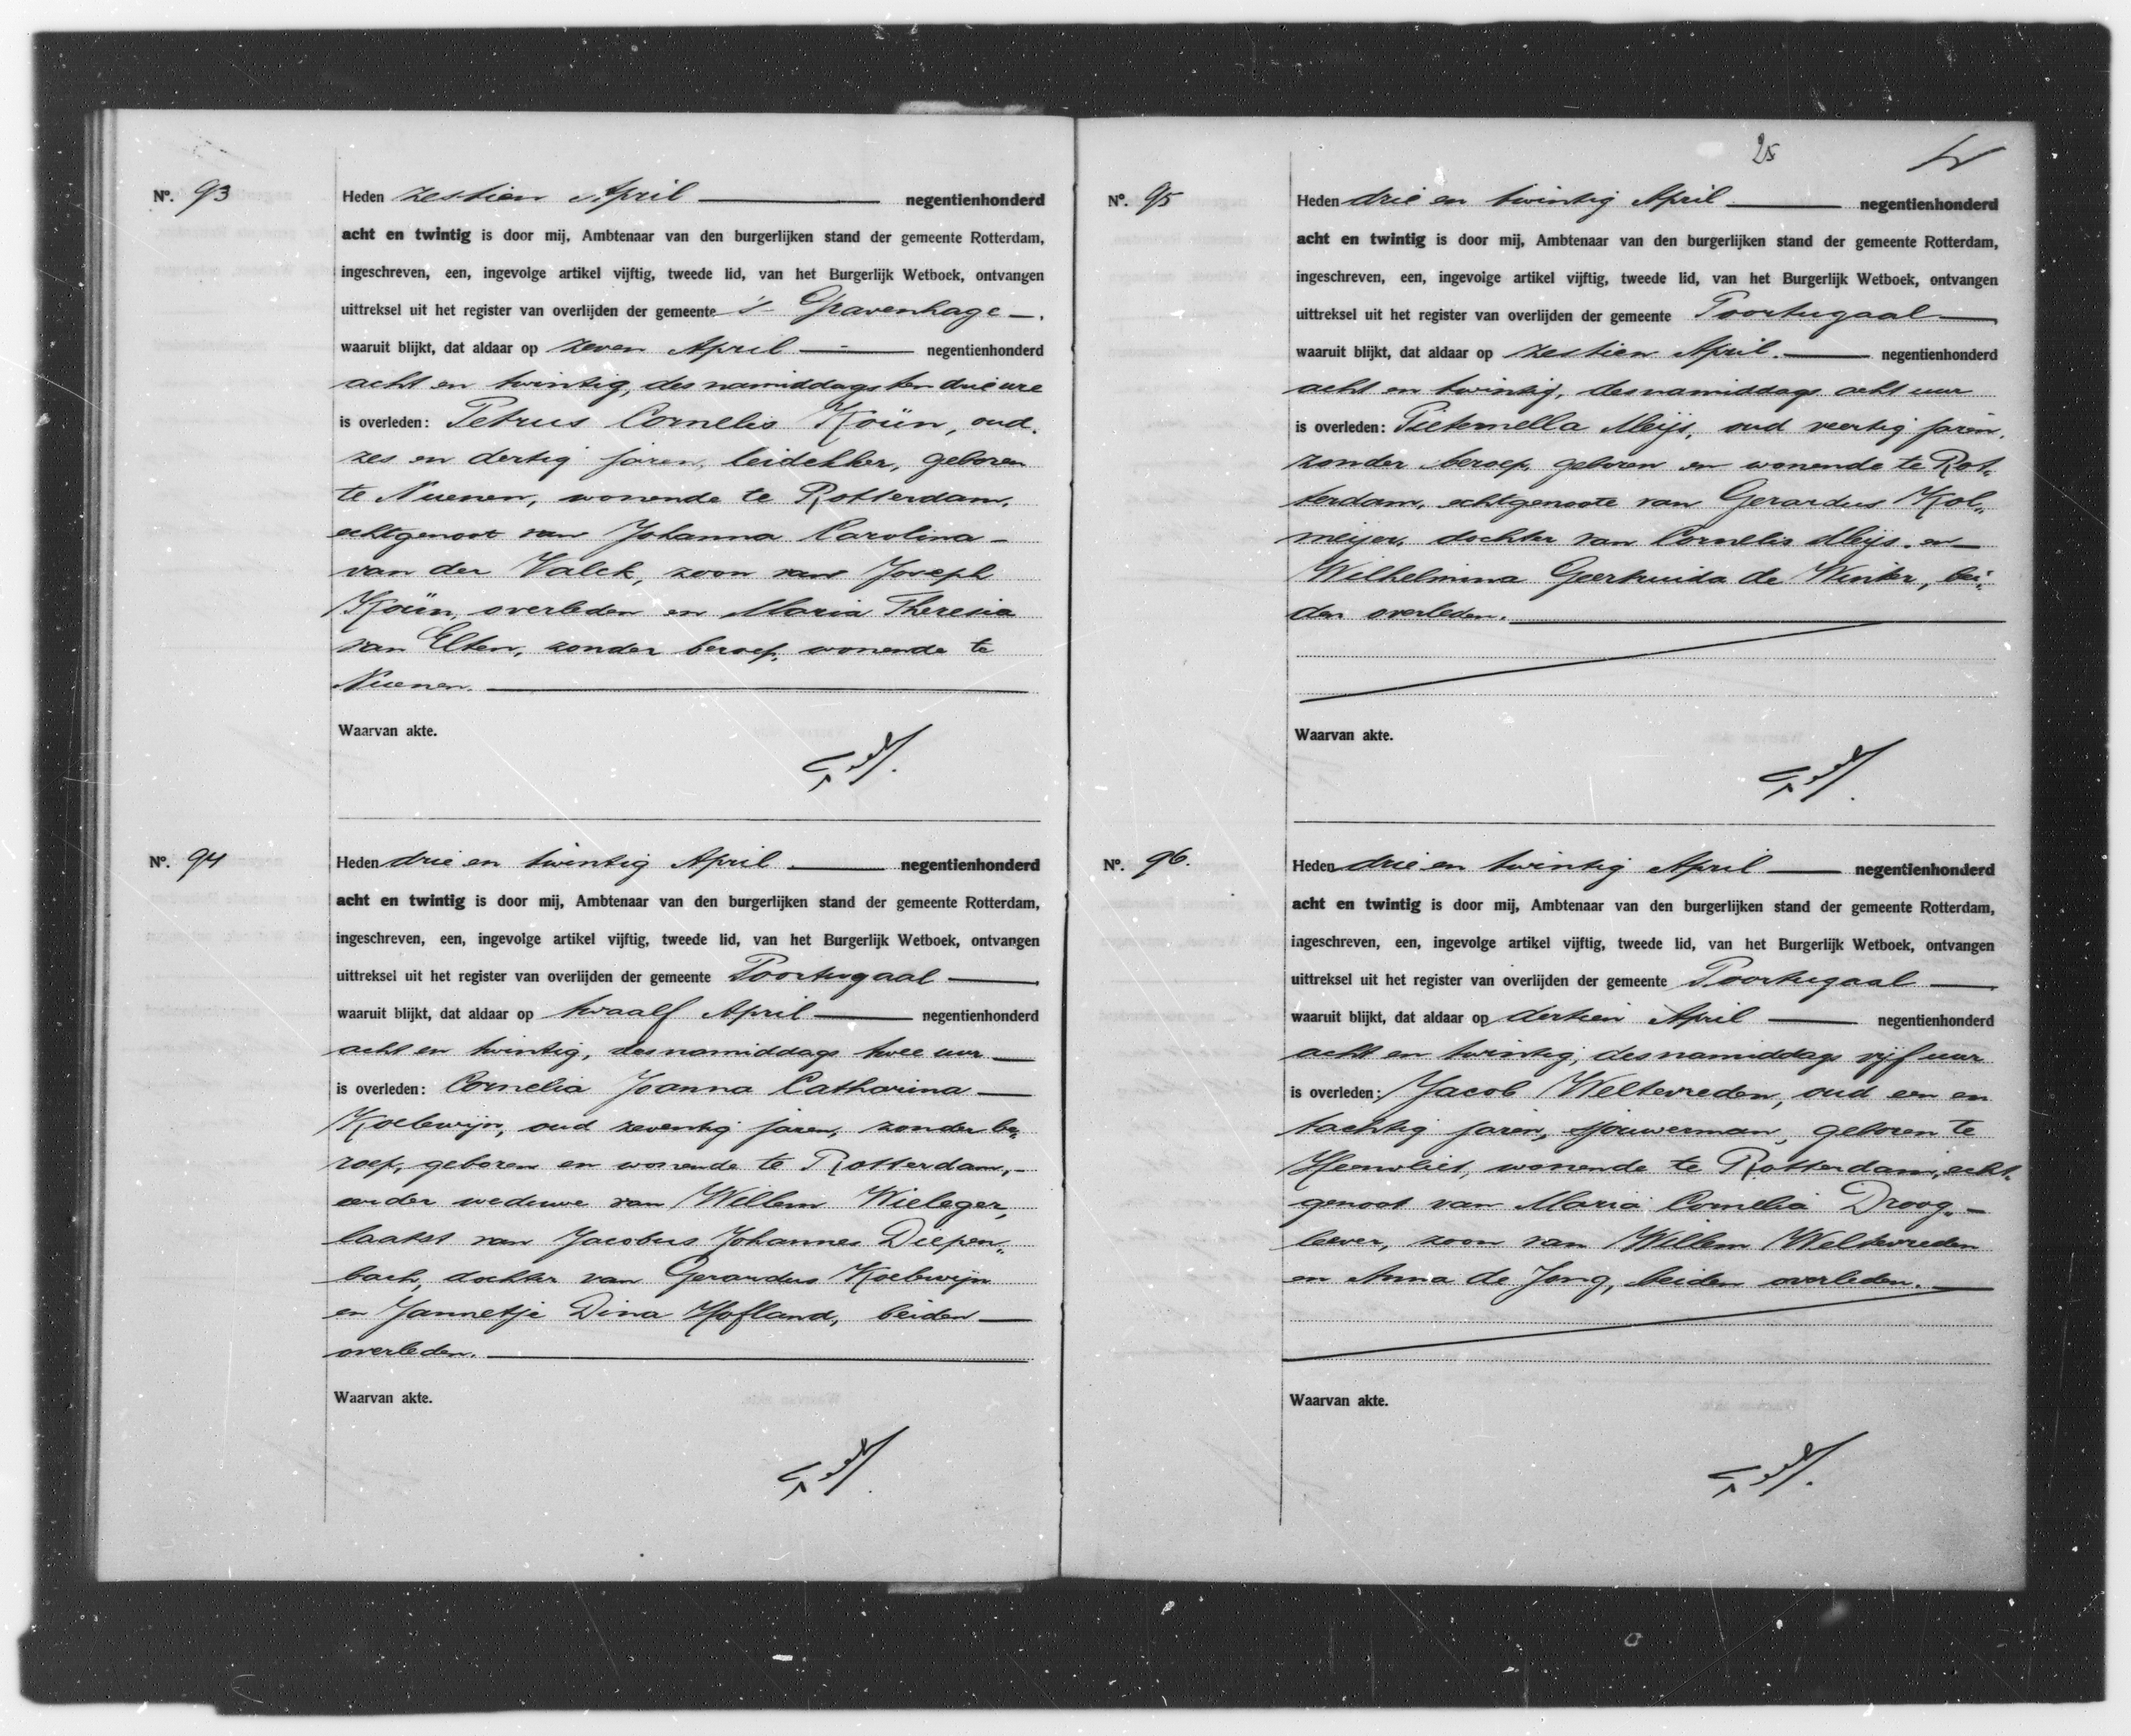 Nº. 93
Heden zestien April negentienhonderd
acht en twintig is door mij, Ambtenaar van den burgerlijken stand der gemeente Rotterdam,
ingeschreven, een, ingevolge artikel vijftig, tweede lid, van het Burgerlijk Wetboek, ontvangen
uittreksel uit het register van overlijden der gemeente 's Gravenhage
waaruit blijkt, dat aldaar op zeven April negentienhonderd
acht en twintig, des namiddags ten drie ure
is overleden: Petrus Cornelis Koün, oud
zes en dertig jaren, leidekker, geboren
te Nuenen, wonende te Rotterdam,
echtgenoot van Johanna Carolina
van der Valck, zoon van Joseph
Koün, overleden en Maria Theresia
van Elten, zonder beroep, wonende te
Nuenen.
Waarvan akte.
Nº. 94
Heden drie en twintig April negentienhonderd
acht en twintig is door mij, Ambtenaar van den burgerlijken stand der gemeente Rotterdam,
ingeschreven, een, ingevolge artikel vijftig, tweede lid, van het Burgerlijk Wetboek, ontvangen
uittreksel uit het register van overlijden der gemeente Poortugaal
waaruit blijkt, dat aldaar op twaalf April negentienhonderd
acht en twintig, des namiddags twee uur
is overleden: Cornelia Joanna Catharina
Koelewijn, oud zeventig jaren, zonder be„
roep, geboren en wonende te Rotterdam,
eerder weduwe van Willem Wieleger,
laatst van Jacobus Johannes Diepen„
bach, dochter van Gerardus Koelewijn
en Jannetje Dina Hofland, beiden
overleden.
Waarvan akte.
25
Nº. 95
Heden drie en twintig April negentienhonderd
acht en twintig is door mij, Ambtenaar van den burgerlijken stand der gemeente Rotterdam,
ingeschreven, een, ingevolge artikel vijftig, tweede lid, van het Burgerlijk Wetboek, ontvangen
uittreksel uit het register van overlijden der gemeente Poortugaal
waaruit blijkt, dat aldaar op zestien April. negentienhonderd
acht en twintig, des namiddags acht uur
is overleden: Pieternella Meijs, oud veertig jaren,
zonder beroep, geboren en wonende te Rot„
terdam, echtgenoote van Gerardus Kol„
meijer, dochter van Cornelis Meijs en
Wilhelmina Geertruida de Winter, bei„
den overleden.
Waarvan akte.
Nº. 96.
Heden drie en twintig April negentienhonderd
acht en twintig is door mij, Ambtenaar van den burgerlijken stand der gemeente Rotterdam,
ingeschreven, een, ingevolge artikel vijftig, tweede lid, van het Burgerlijk Wetboek, ontvangen
uittreksel uit het register van overlijden der gemeente Poortugaal
waaruit blijkt, dat aldaar op dertien April negentienhonderd
acht en twintig, des namiddags vijf uur
is overleden: Jacob Weltevreden, oud een en
tachtig jaren, sjouwerman, geboren te
Heenvliet, wonende te Rotterdam, echt„
genoot van Maria Cornelia Droog„
leever, zoon van Willem Weltevreden
en Anna de Jong, beiden overleden.
Waarvan akte.